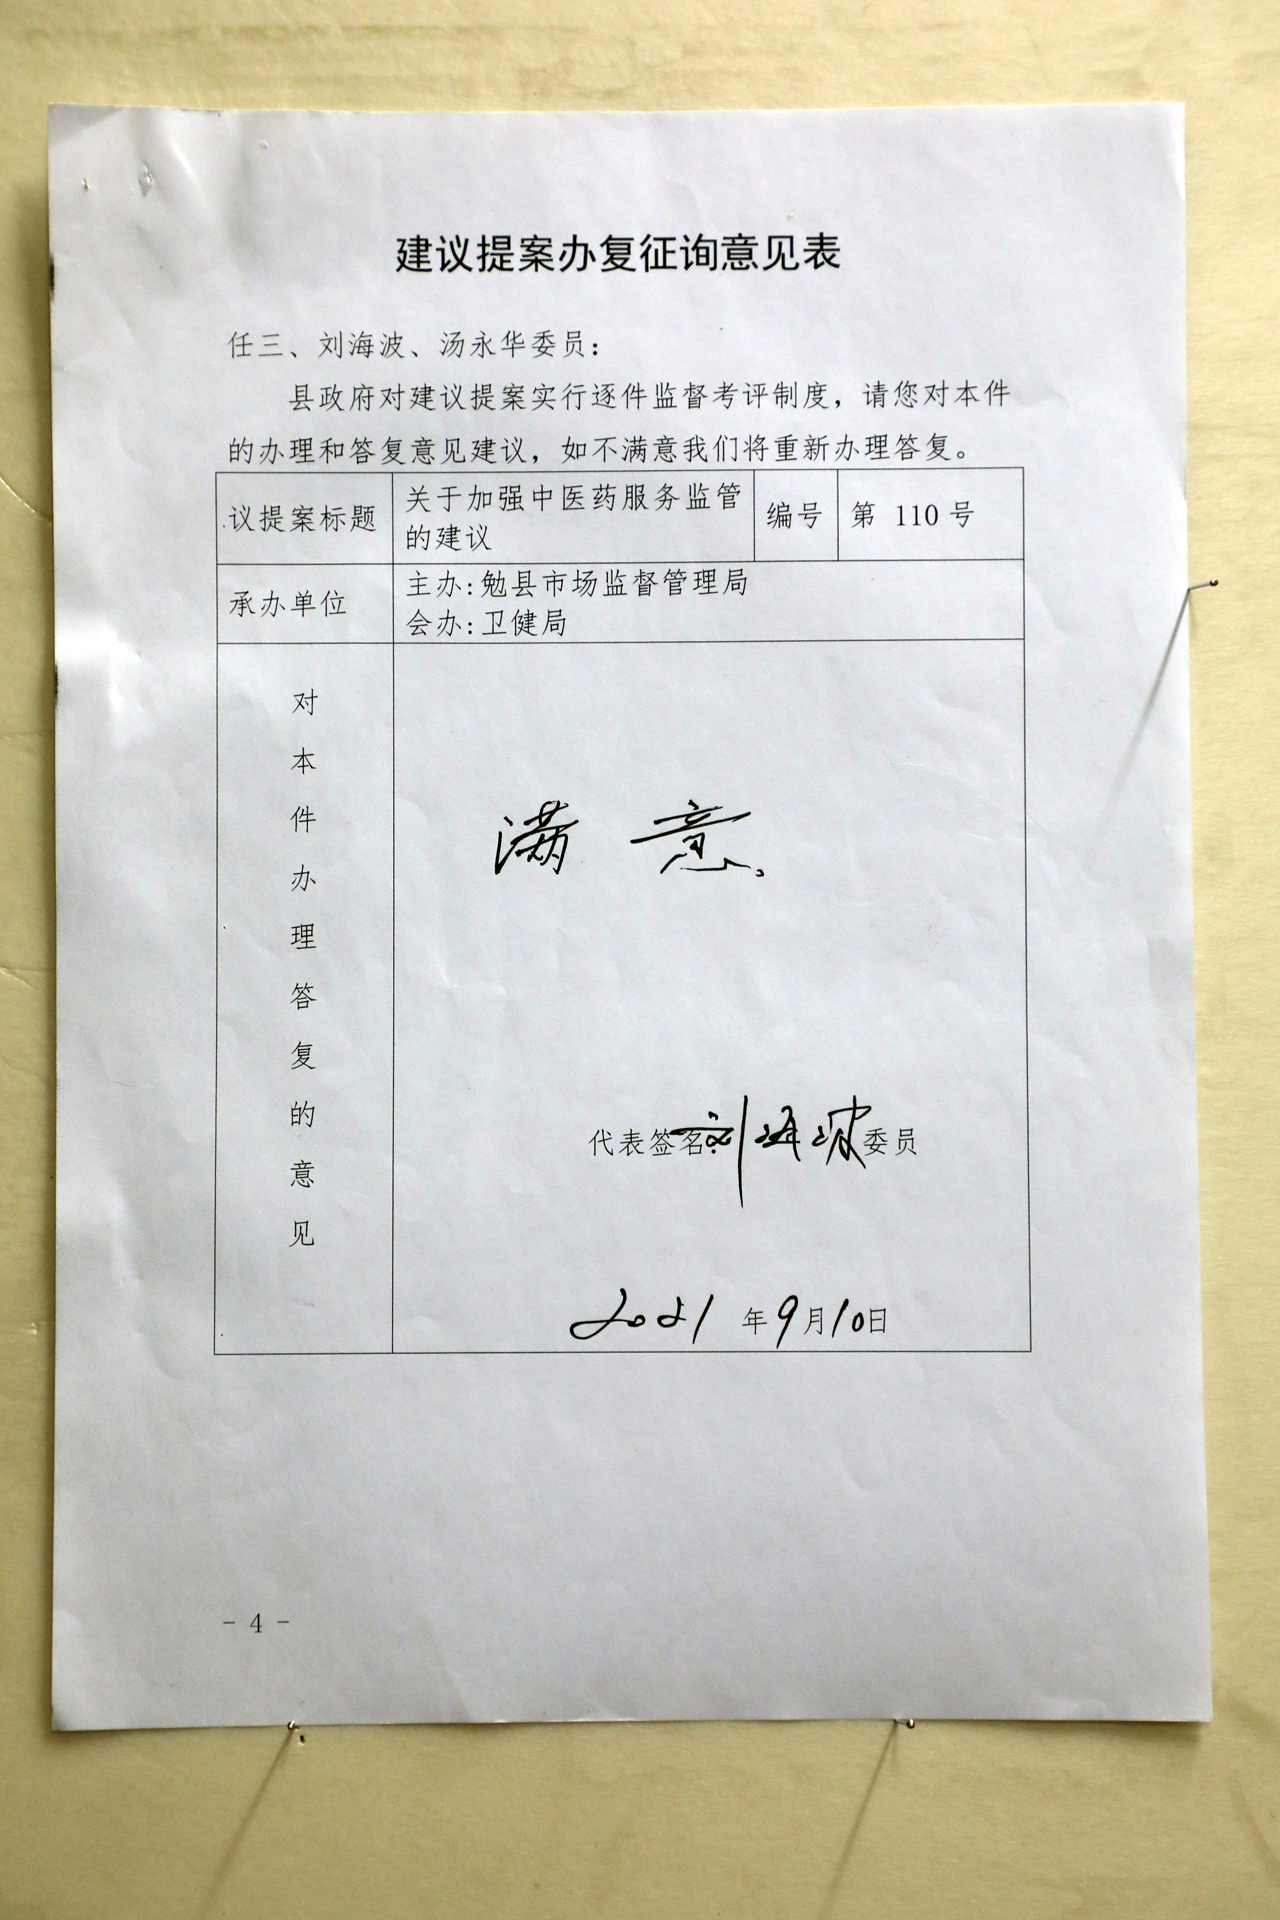 建议提案办复征询意见表
任三、刘海波、汤永华委员：
县政府对建议提案实行逐件监督考评制度，请您对本件
的办理和答复意见建议，如不满意我们将重新办理答复。
议提案标题
关于加强中医药服务监管
的建议
编号
第 110 号
承办单位
主办：勉县市场监督管理局
会办：卫健局
对
本
件
办
理
答
复
的
意
见
满意
代表签名：刘海波委员
2021年9月10日
- 4 -